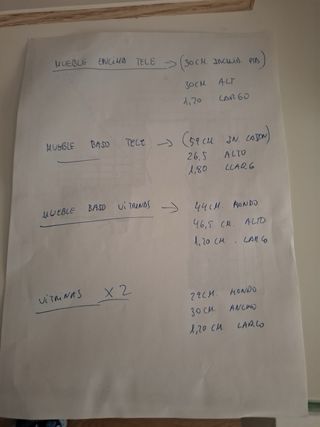 MUEBLE ENCIMA TELE → (30CM
30CM ALT
1,70 LARGO
MUEBLE BAJO TELE → (59CM
26,5 ALTO
1,80 LLARG
MUEBLE BAJO VITRINAS → 44CM HONDO
46,5 CM. ALTO
1,20 CM. LARGO
VITRINAS X2
29CM. HONDO
30CM ANCHO
1,20 CM LARGO